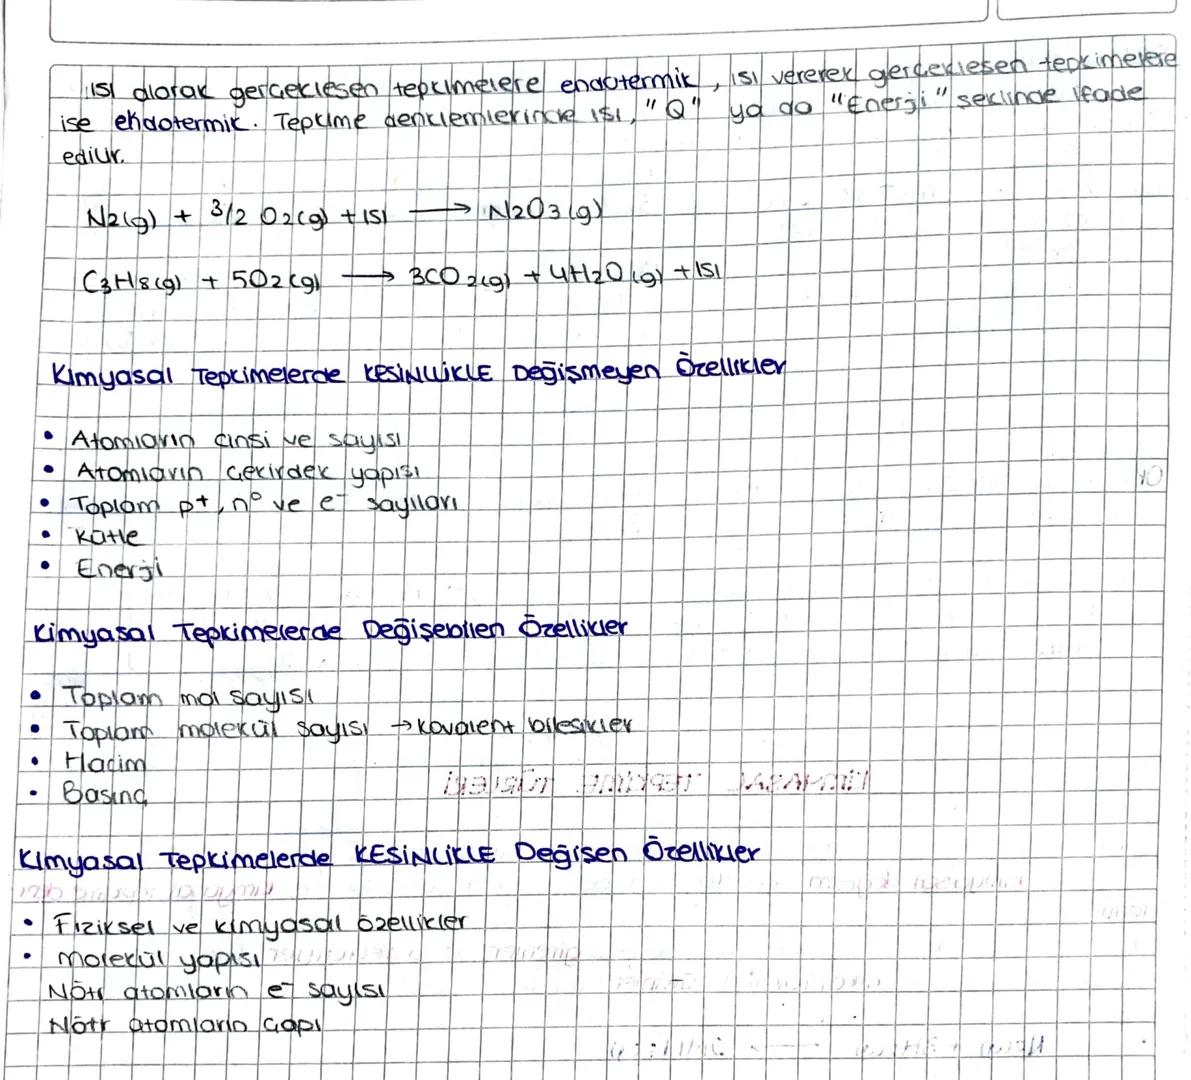 ısı alarak gerçekleşen tepkimelere endotermik, ısı vererek gerçekleşen tepkimelere
ise endotermik. Tepkime denklemlerinde ısı, "Q" ya da "Enerji" şeklinde ifade
edilir.
N2(g) + 3/2 O2(g) + ısı → N2O3(g)
C3H8(g) + 5O2(g) → 3CO2(g) + 4H2O(g) + ısı
Kimyasal Tepkimelerde KESİNLİKLE Değişmeyen Özellikler
• Atomların cinsi ve sayısı
• Atomların çekirdek yapısı
• Toplam p+, n° ve e- sayıları
• Kütle
• Enerji
Kimyasal Tepkimelerde Değişebilen Özellikler
• Toplam mol sayısı
• Toplam molekül sayısı → kovalent bileşikler
• Hacim
• Basınç
KİMYASAL TEPKİME TÜRLERİ
Kimyasal Tepkimelerde KESİNLİKLE Değişen Özellikler
• Fiziksel ve kimyasal özellikler
• Molekül yapısı
Nötr atomların e- sayısı
Nötr atomların çapı